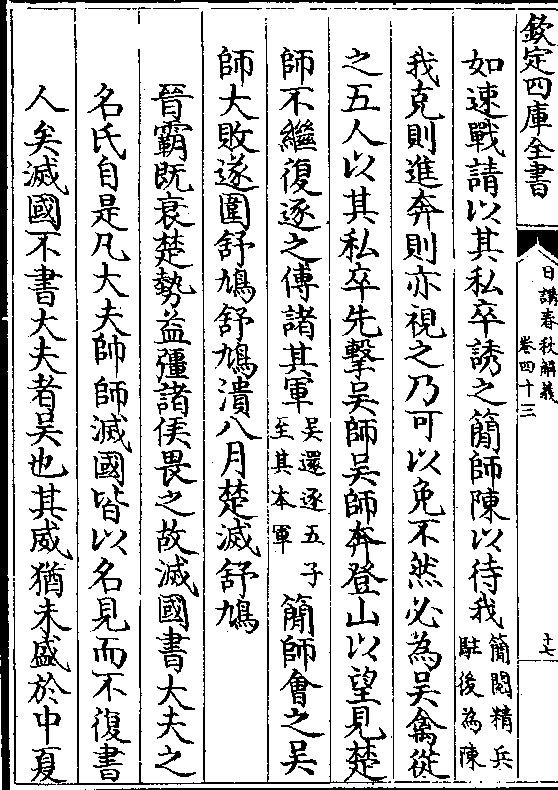 欽定四庫全書
日講春秋解義
卷四十三
十七
如速戰請以其私卒誘之簡師陳以待我簡閱精兵駐後為陳
我克則進奔則亦視之乃可以免不然必為吳禽從
之五人以其私卒先擊吳師吳師奔登山以望見楚
師不繼復逐之傅諸其軍吳還逐五子至其本軍簡師會之吳
師大敗遂圍舒鳩舒鳩潰八月楚滅舒鳩
晉霸既衰楚勢益彊諸侯畏之故滅國書大夫之
名氏自是凡大夫帥師滅國皆以名見而不復書
人矣滅國不書大夫者吳也其威猶未盛於中夏